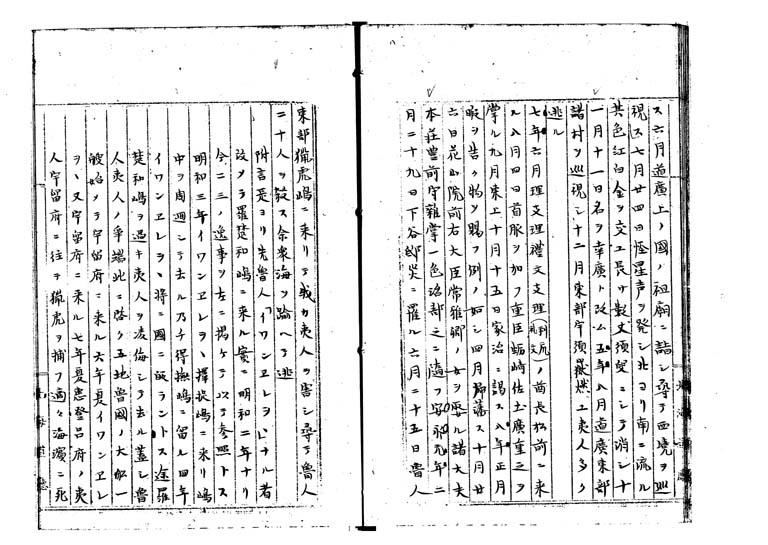 ス六月道廣上ノ國ノ祖廟ニ詣シ尋テ西境ヲ巡
視ス七月廿四日怪星声ヲ発シ北ヨリ南ニ流ル
其色紅白金ヲ交エ長サ數丈須臾ニシテ消シ十
一月十一日名ヲ章廣ト改ム五年八月道廣東部
諸村ヲ巡視シ十二月東部宇須嶽燃エ夷人多ク
逃ル
七年六月理支理禮文支理ノ酋長松前ニ来
ル八月四日首服ヲ加フ重臣蛎崎佐士廣重之ヲ
掌ル九月東上十月十五日家治ニ謁ス八年正月
暇ヲ告ケ物ヲ賜フ例ノ如シ四月歸藩ス十月廿
六日花山院前右大臣常雅卿ノ女ヲ娶ル諸大夫
本荘豊前守雜掌一色治部之ニ隨フ安永元年二
月二十九日下谷邸災ニ罹ル六月二十五日魯人
東部獵虎嶋ニ来リテ我カ夷人ヲ害シ尋テ魯人
二十人ヲ殺ス余衆海ヲ踰ヘテ逃
附言是ヨリ先魯人「イワンヱレヲヽ」ナル者
設メテ羅楚和嶋ニ来ル實ニ明和二年ナリ
今二三ノ逸事ヲ左ニ揭ケテ以テ参照トス
明和三年イワンヱレヲヽ擇捉嶋ニ来リ嶋
中ヲ周廻シテ去ル乃チ得撫嶋ニ留ル四年
イワンヱレヲヽ將ニ國ニ皈ラントス途羅
楚和嶋ヲ過キ夷人ヲ凌侮シテ去ル蓋シ魯
人夷人ノ爭端此ニ啓ク五地魯國ノ大舩一
艘始メテ宇留府ニ来ル六年夏イワンヱレ
ヲヽ又宇留府ニ来ル七年夏恵登呂府ノ夷
人宇留府ニ往テ獵虎ヲ捕フ適々海濱ニ死